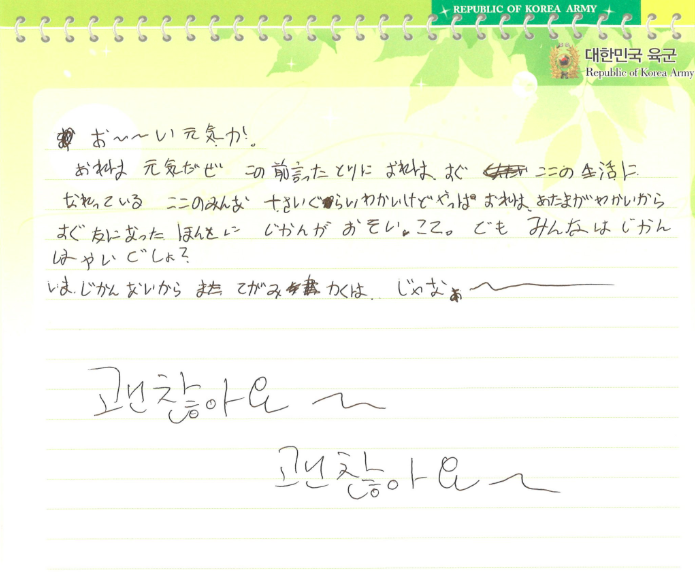 REPUBLIC OF KOREA ARMY
대한민국 육군
Republic of Korea Army
お〜〜い 元気か!。
おれは 元気だぜ この前言ったとりに おれは、すぐ ここの生活に
なれっている ここのみんな 十さいぐらいわかいけどやっぱ おれは、あたまがわかいから
すぐ友になった ほんとに じかんが おそい。ここ。 でも みんなはじかん
はやいでしょ?
いま、じかんないから また てがみ かくは、 じゃなぁ〜
괜찮아요 ~
괜찮아요~